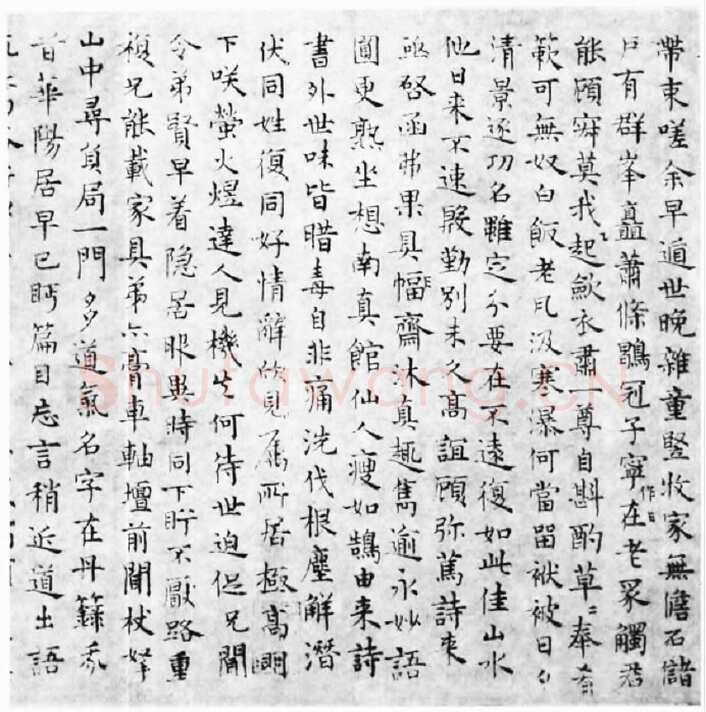 帶束嗟余早遁世晚雜童豎牧家無儋石儲
戶有群峯矗蕭條鶡冠子寧在老眾觸君
能顧寂莫我起斂衣肅一尊自斟酌草〻奉
範可無奴白飯老瓦汲寒瀑何當留袱被日
清景逐功名雖定分要在不遠復如此佳山水
他日來不速殷勤別未久高誼顧弥篤詩來
亟啓函弗果具幅齋沐真趣雋逾永妙語
圓更熟坐想南真館仙人瘦如鵠由來詩
書外世味皆腊毒自非痛洗伐根塵解潛
伏同姓復同好情辭見居所居極高明
下咲螢火煜達人見機先何待世迫促兄聞
令弟賢早着隱居服異時同下貯不厭路重
複兄能載家具弟亦膏車軸壇前聞杖拏
山中尋負局一門多道氣名字在丹籙
昔華陽居早已眄篇目忘言稍近道出語
Shufawang.CN